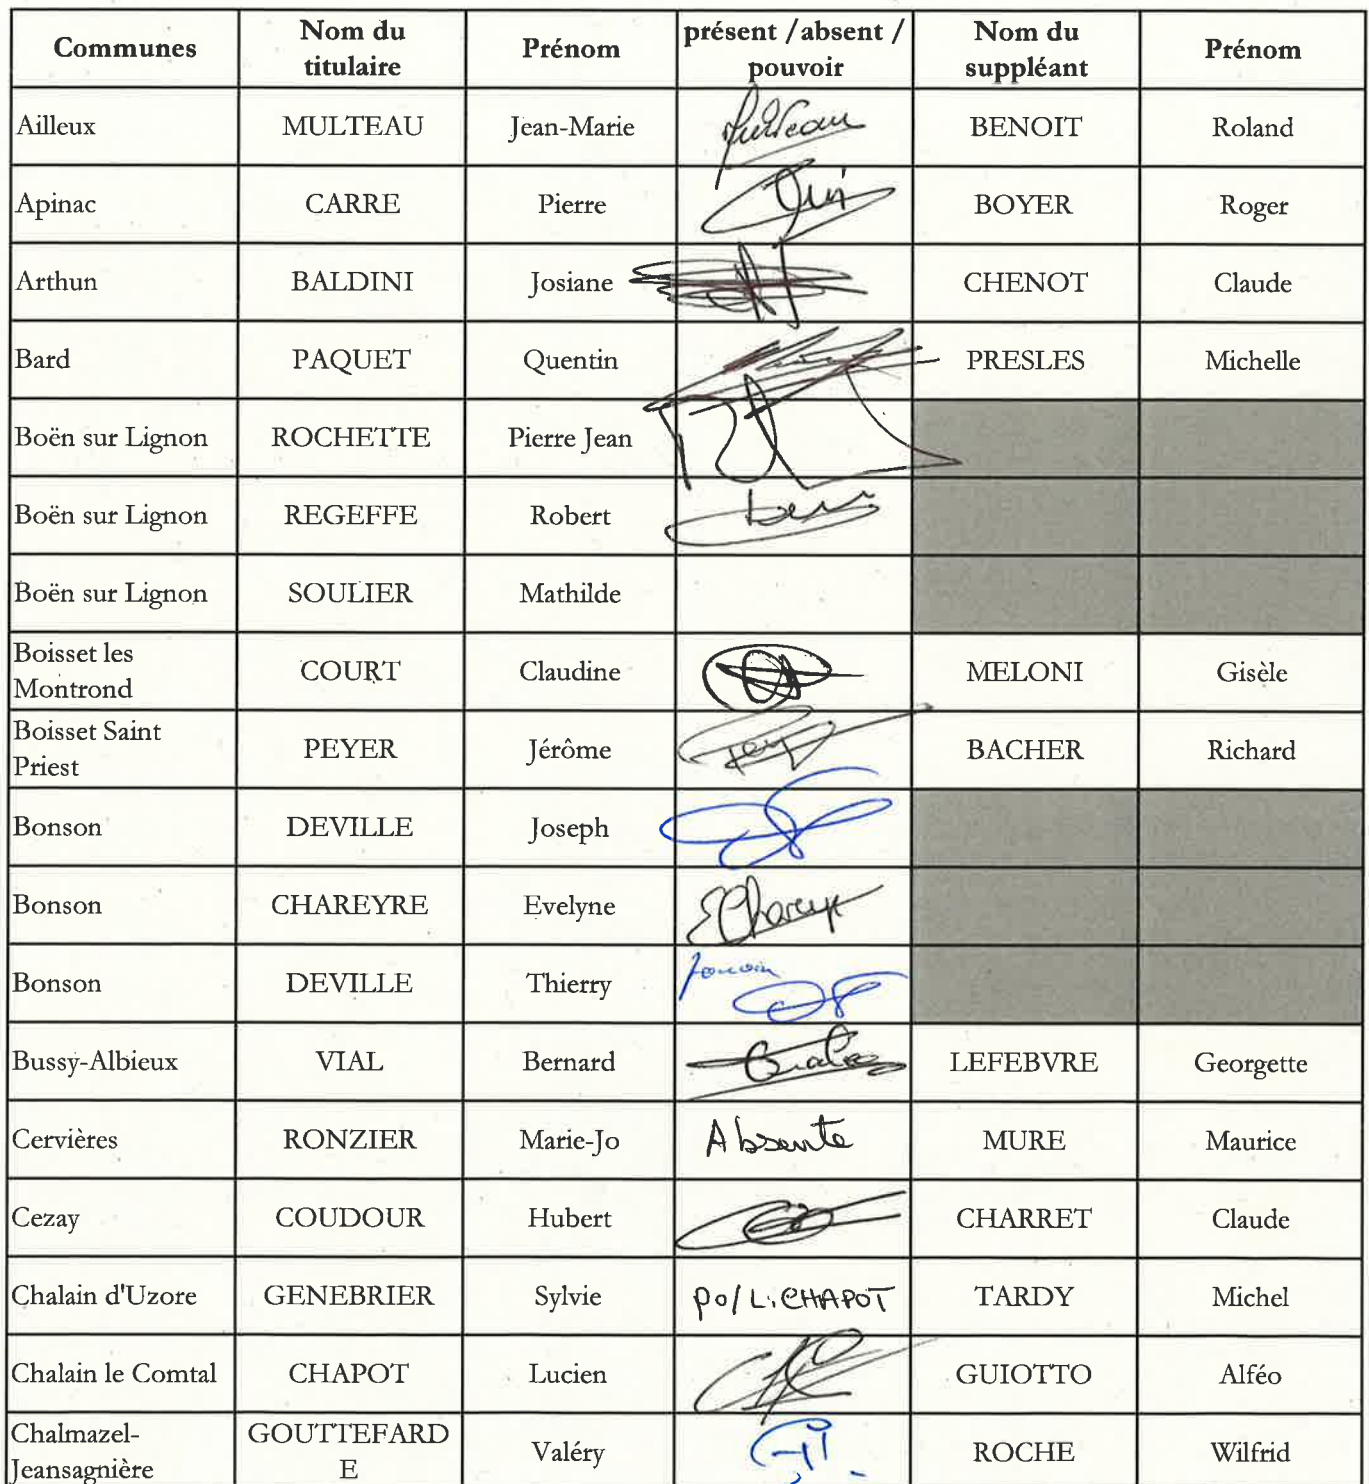 Communes Nom du titulaire Prénom présent / absent / pouvoir Nom du suppléant Prénom
Ailleux MULTEAU Jean-Marie BENOIT Roland
Apinac CARRE Pierre BOYER Roger
Arthun BALDINI Josiane CHENOT Claude
Bard PAQUET Quentin PRESLES Michelle
Boën sur Lignon ROCHETTE Pierre Jean
Boën sur Lignon REGEFFE Robert
Boën sur Lignon SOULIER Mathilde
Boisset les Montrond COURT Claudine MELONI Gisèle
Boisset Saint Priest PEYER Jérôme BACHER Richard
Bonson DEVILLE Joseph
Bonson CHAREYRE Evelyne EChareyre
Bonson DEVILLE Thierry pouvoir
Bussy-Albieux VIAL Bernard LEFEBVRE Georgette
Cervières RONZIER Marie-Jo Absente MURE Maurice
Cezay COUDOUR Hubert CHARRET Claude
Chalain d'Uzore GENEBRIER Sylvie po/ L. CHAPOT TARDY Michel
Chalain le Comtal CHAPOT Lucien GUIOTTO Alféo
Chalmazel-Jeansagnière GOUTTEFARDE Valéry ROCHE Wilfrid